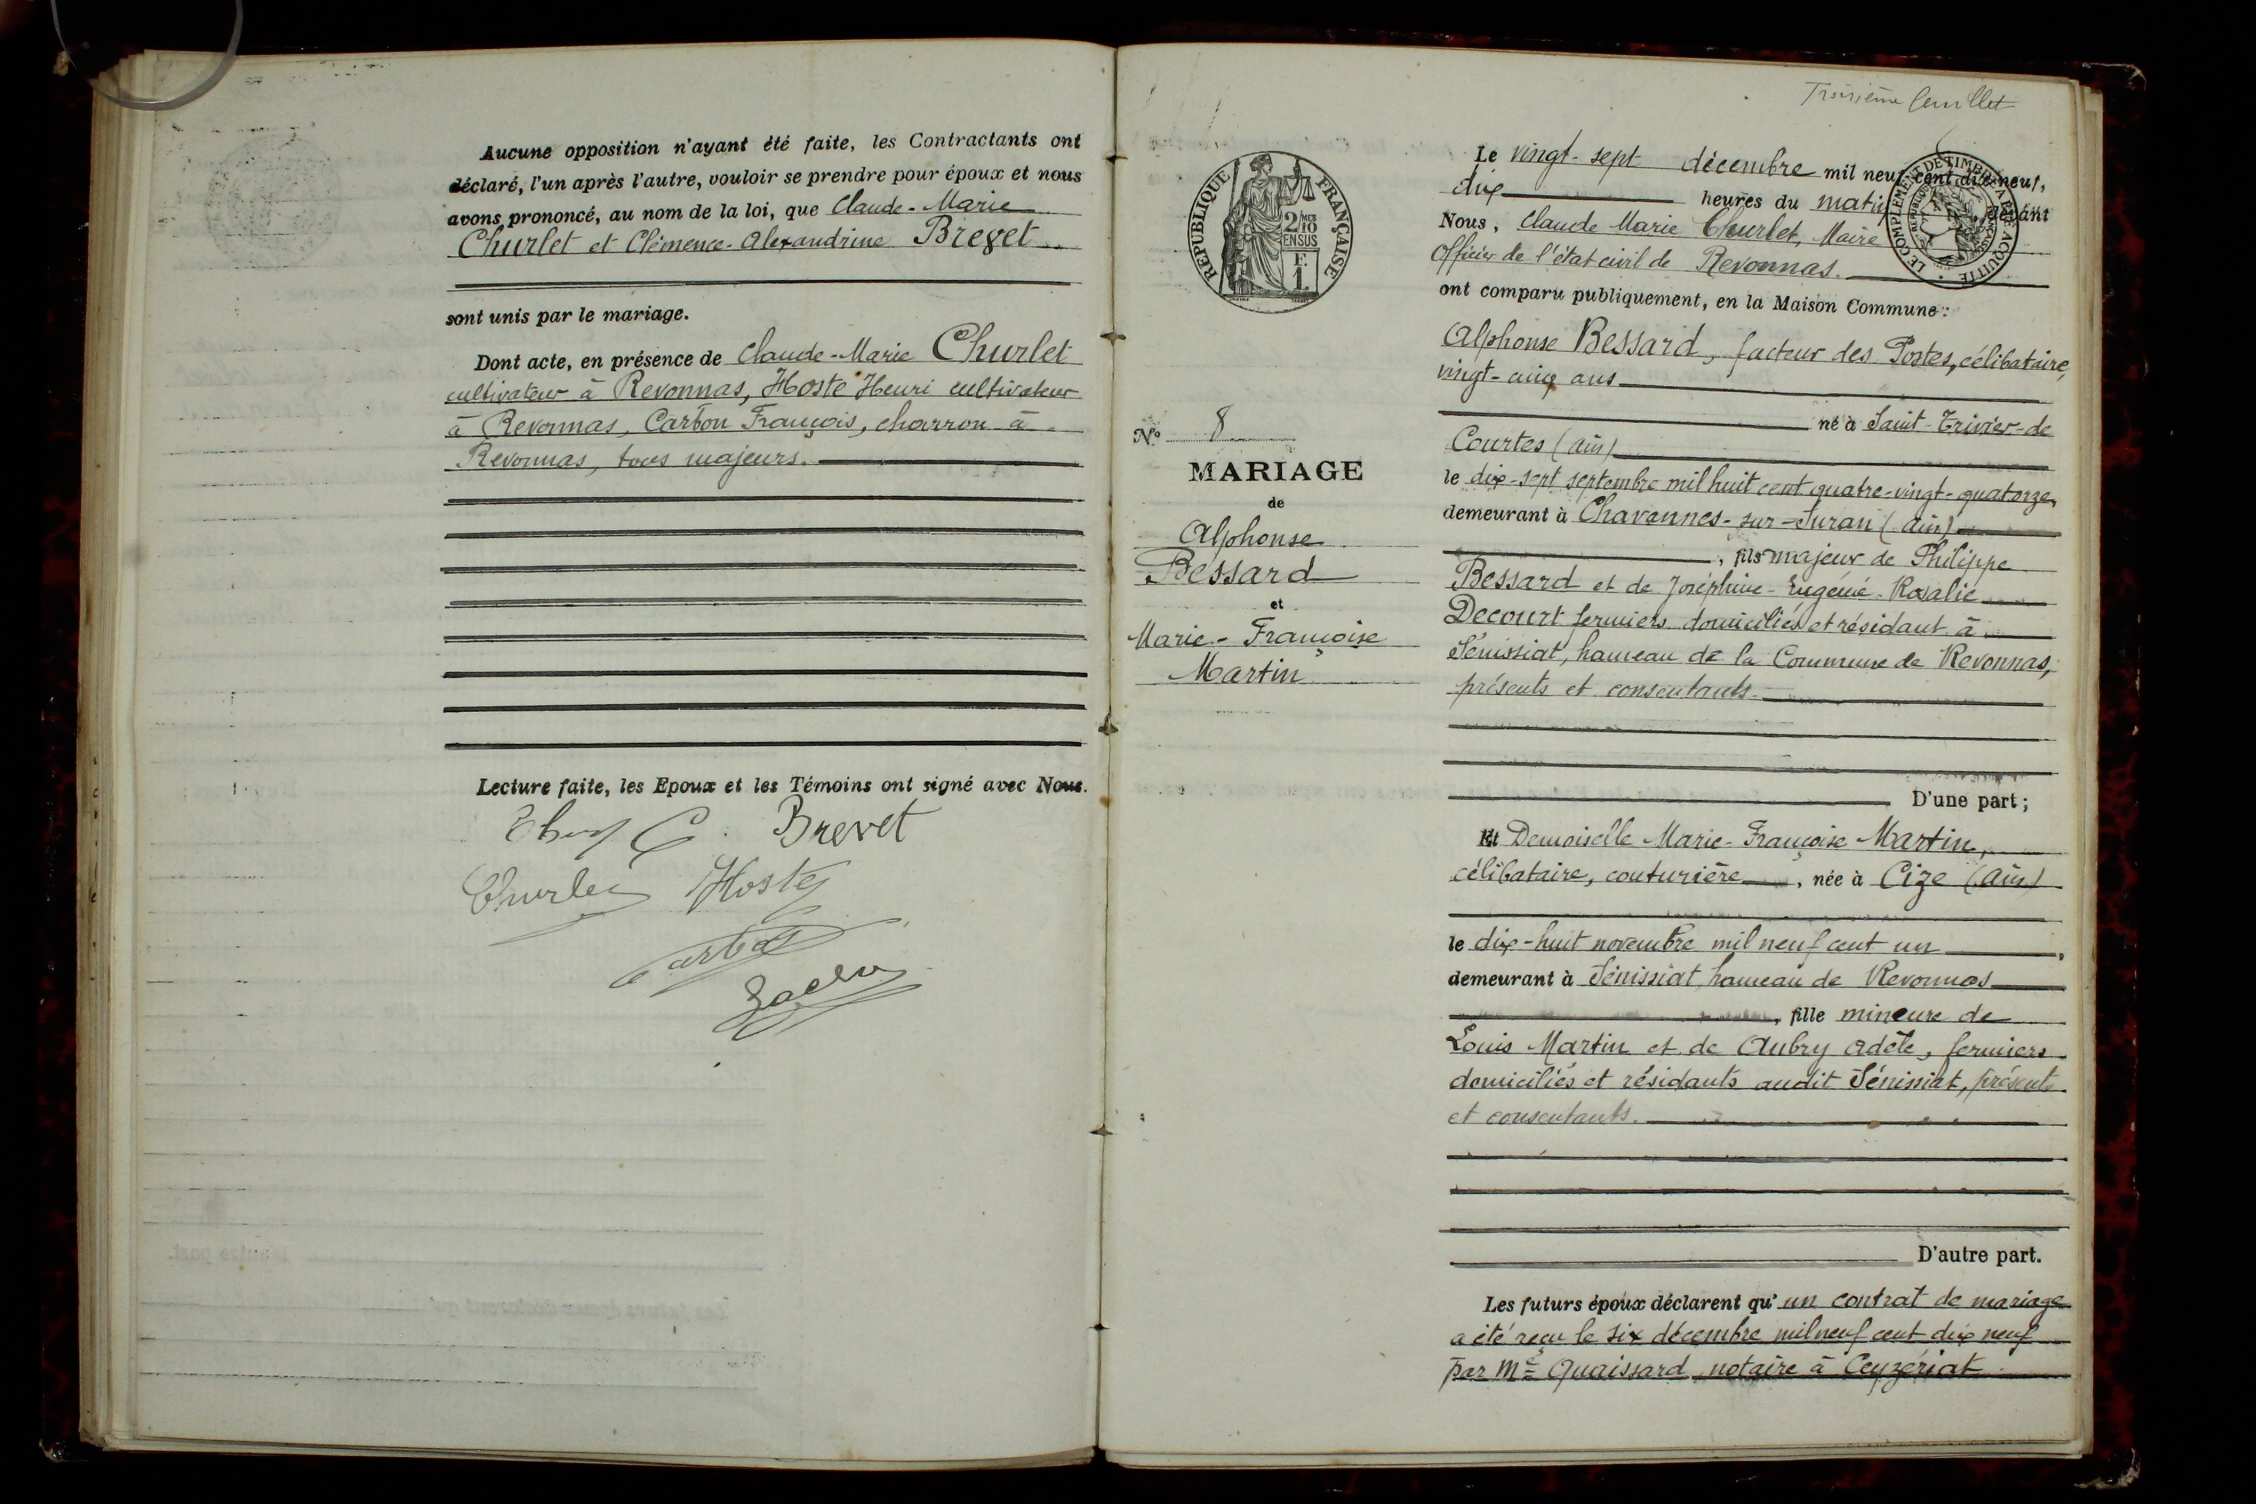 Aucune opposition n'ayant été faite, les Contractants ont
déclaré, l'un après l'autre, vouloir se prendre pour époux et nous
avons prononcé, au nom de la loi, que Claude-Marie
Churlet et Clémence-Alexandrine Brevet
sont unis par le mariage.
Dont acte, en présence de Claude-Marie Churlet
cultivateur à Revonnas, Hoste Henri cultivateur
à Revonnas, Carbon François, charron à
Revonnas, tous majeurs.
Lecture faite, les Epoux et les Témoins ont signé avec Nous.
C. Brevet
Churlet Hoste
Troisième feuillet
RÉPUBLIQUE FRANÇAISE
2/10 EN SUS
F. 1
LE COMPLÉMENT DE TIMBRE A ÉTÉ ACQUITTÉ
Le vingt-sept décembre mil neuf cent dix-neuf,
dix heures du matin, devant
Nous, Claude Marie Churlet, Maire
Officier de l'état civil de Revonnas.
ont comparu publiquement, en la Maison Commune:
Alphonse Bessard, facteur des Postes, célibataire,
vingt-cinq ans
né à Saint-Trivier-de
Courtes (Ain)
le dix-sept septembre mil huit cent quatre-vingt-quatorze,
demeurant à Chavannes-sur-Suran (Ain)
, fils majeur de Philippe
Bessard et de Joséphine-Eugénie-Rosalie
Decourt fermiers domiciliés et résidant à
Sénissiat, hameau de la Commune de Revonnas,
présents et consentants.
D'une part;
N° 8
MARIAGE
de
Alphonse
Bessard
et
Marie-Françoise
Martin
Et Demoiselle Marie-Françoise Martin,
célibataire, couturière, née à Cize (Ain)
le dix-huit novembre mil neuf cent un,
demeurant à Sénissiat, hameau de Revonnas
, fille mineure de
Louis Martin et de Aubry Adèle, fermiers
domiciliés et résidants audit Sénissiat, présents
et consentants.
D'autre part.
Les futurs époux déclarent qu'un contrat de mariage
a été reçu le six décembre mil neuf cent dix neuf
par Me Quaissard notaire à Ceyzériat